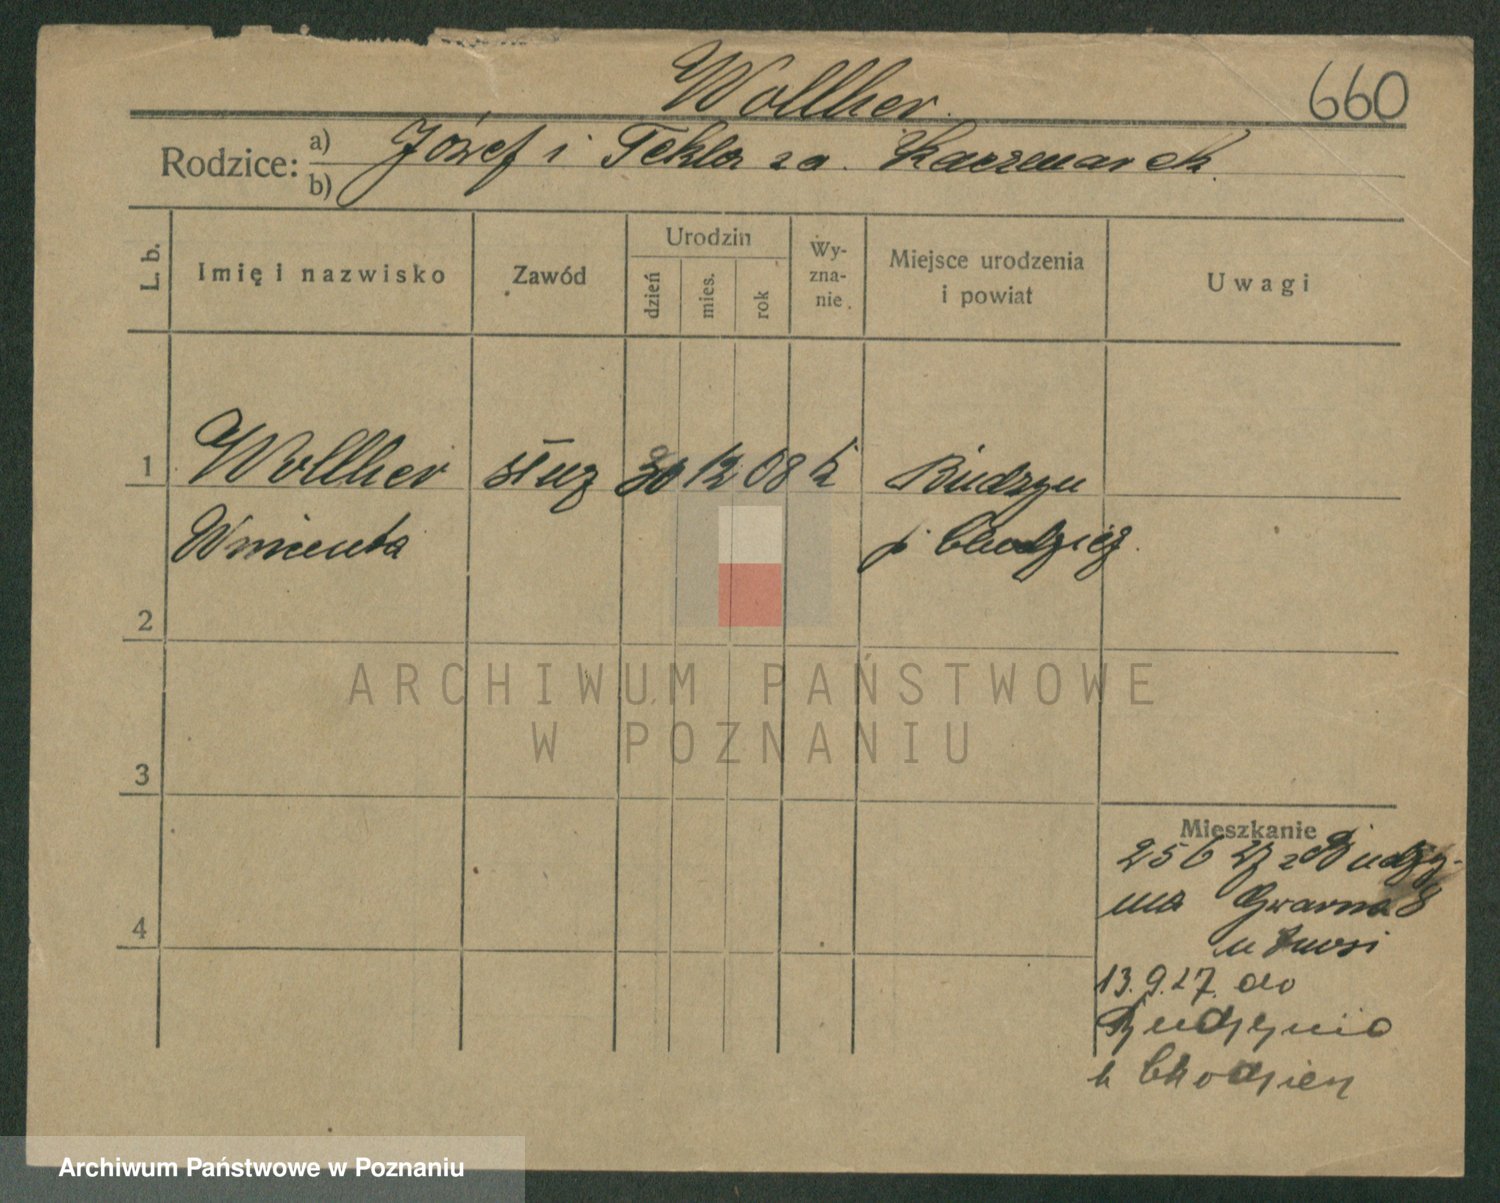 Wollher
660
Rodzice: a) Józef i Tekla za. Kaczmarek.
b)
L. b.
Imię i nazwisko
Zawód
Urodzin
dzień
mies.
rok
Wy-
zna-
nie
Miejsce urodzenia
i powiat
Uwagi
1 Wollher służ 30 12 08 k Budzyn
p Chodzież
2
3
4
Mieszkanie
256 z Budzy-
na Gwarna 8
13.9.27. do
Budzynia
Chodzież
ARCHIWUM PAŃSTWOWE
W POZNANIU
Archiwum Państwowe w Poznaniu